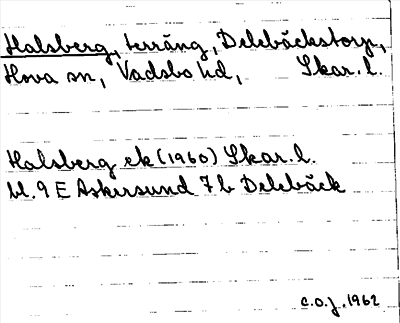 Halsberg, terräng, Delebäckstorp,
Hova sn, Vadsbo hd, Skar. l.
Halsberg ek (1960) Skar. l.
bl. 9 E Askersund 7 b Delebäck
C.O.J. 1962